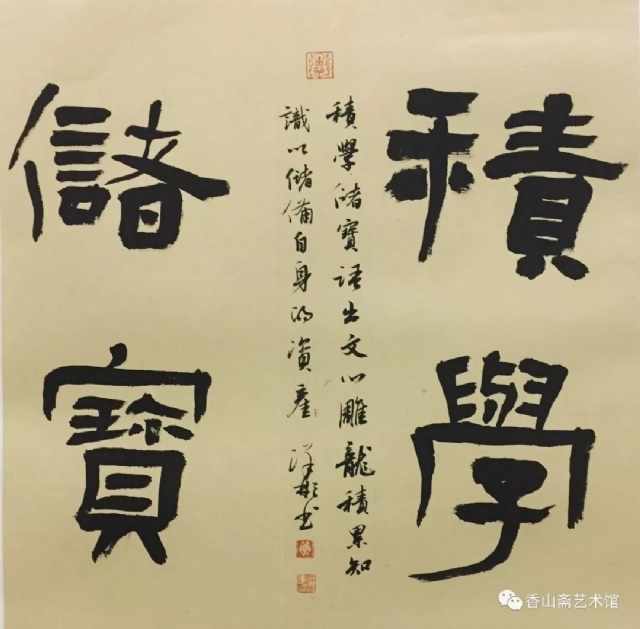 積學
儲寶
積學儲寶語出文心雕龍積累知
識以儲備自身的資產
彬书
香山斋艺术馆